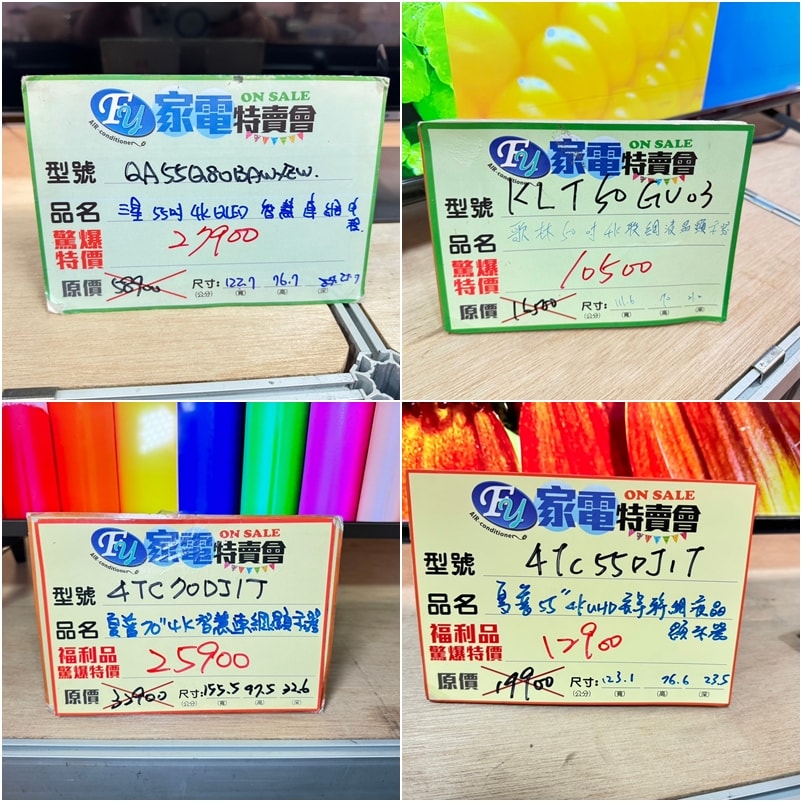 Fy 家電特賣會 ON SALE
AIR-conditioner
型號 QA55Q80BAWXZW.
品名 三星 55吋 4K QLED 智慧連網電視
驚爆特價 27900
原價 58900 尺寸:(公分) 122.7 (寬) 76.7 (高) 25.7 (深)
Fy 家電特賣會 ON SALE
AIR-conditioner
型號 KLT50GU03
品名 歌林50吋4K聯網液晶顯示器
驚爆特價 10500
原價 16500 尺寸:(公分) 111.6 (寬) 70 (高) (深)
Fy 家電特賣會 ON SALE
AIR-conditioner
型號 4TC70DJ1T
品名 夏普70"4K智慧連網顯示器
福利品驚爆特價 25900
原價 33900 尺寸:(公分) 155.5 (寬) 97.5 (高) 32.6 (深)
Fy 家電特賣會 ON SALE
AIR-conditioner
型號 4TC55DJ1T
品名 夏普55"4K UHD 液晶顯示器
福利品驚爆特價 12900
原價 19900 尺寸:(公分) 123.1 (寬) 76.6 (高) 23.5 (深)